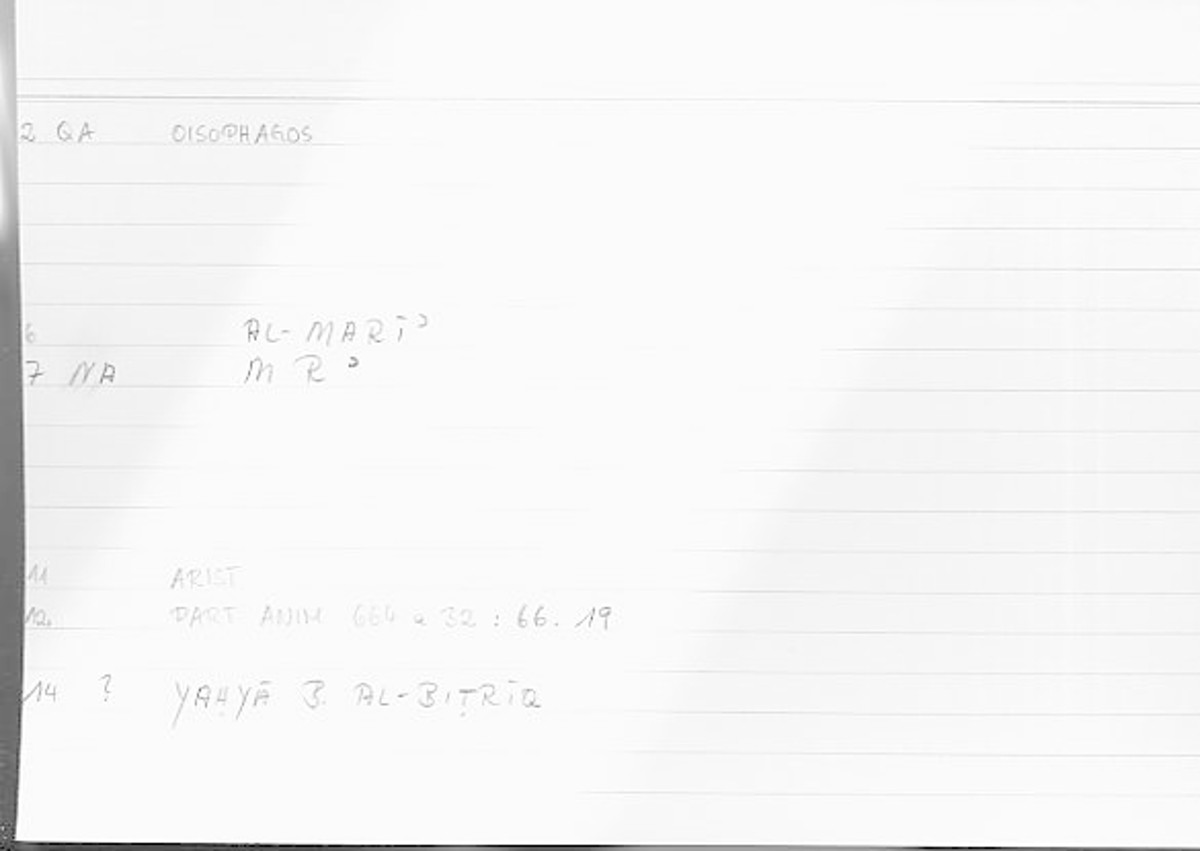 2 QA OISOPHAGOS
6 AL-MARĪʾ
7 NA M R ʾ
11 ARIST
12 PART ANIM 664 a 32 : 66.19
14 ? YAḤYĀ B. AL-BIṬRĪQ